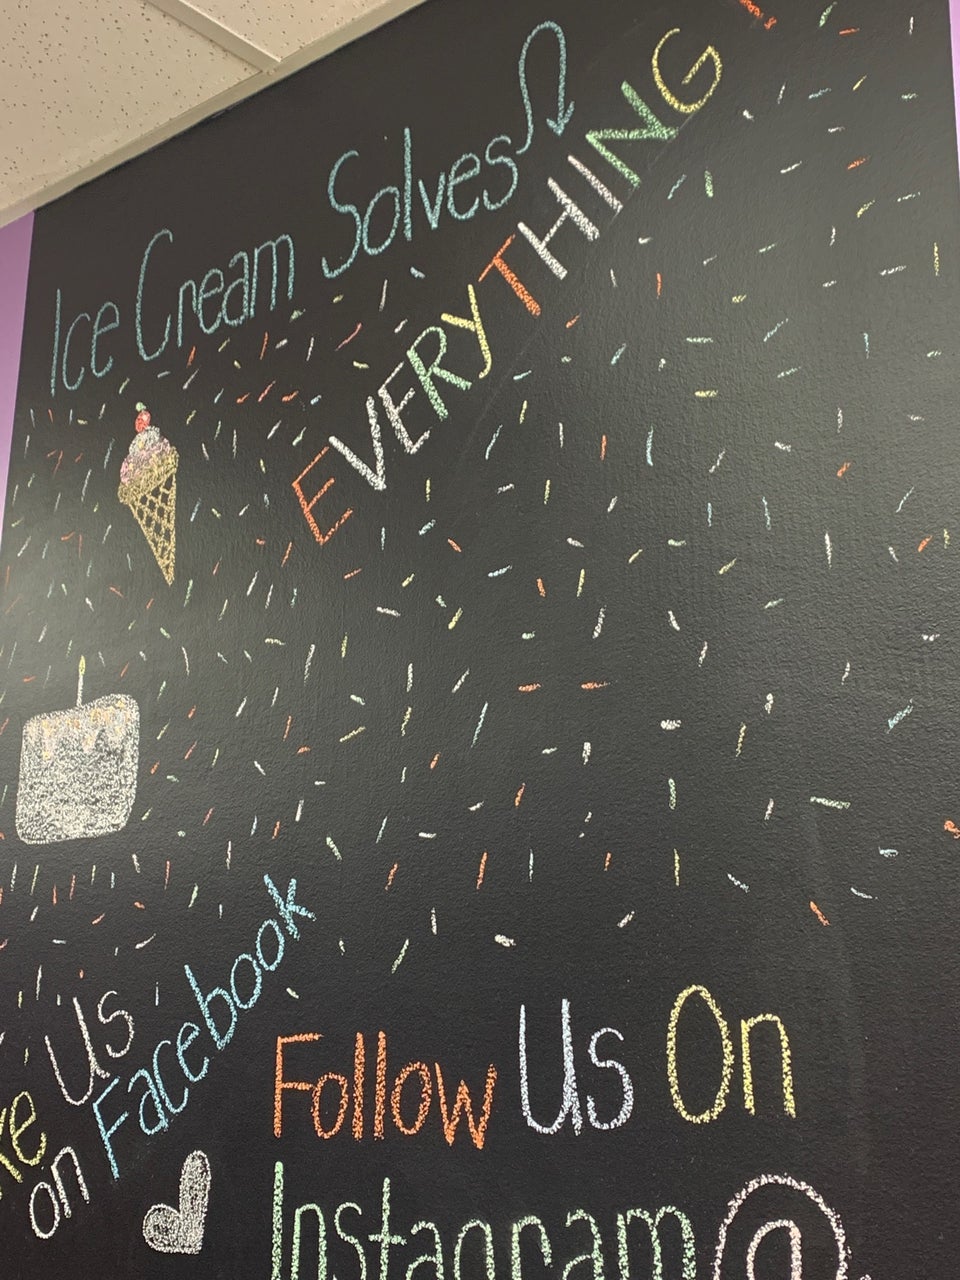 Ice Cream Solves
EVERYTHING!
Us
on Facebook
Follow Us On
Instagram @